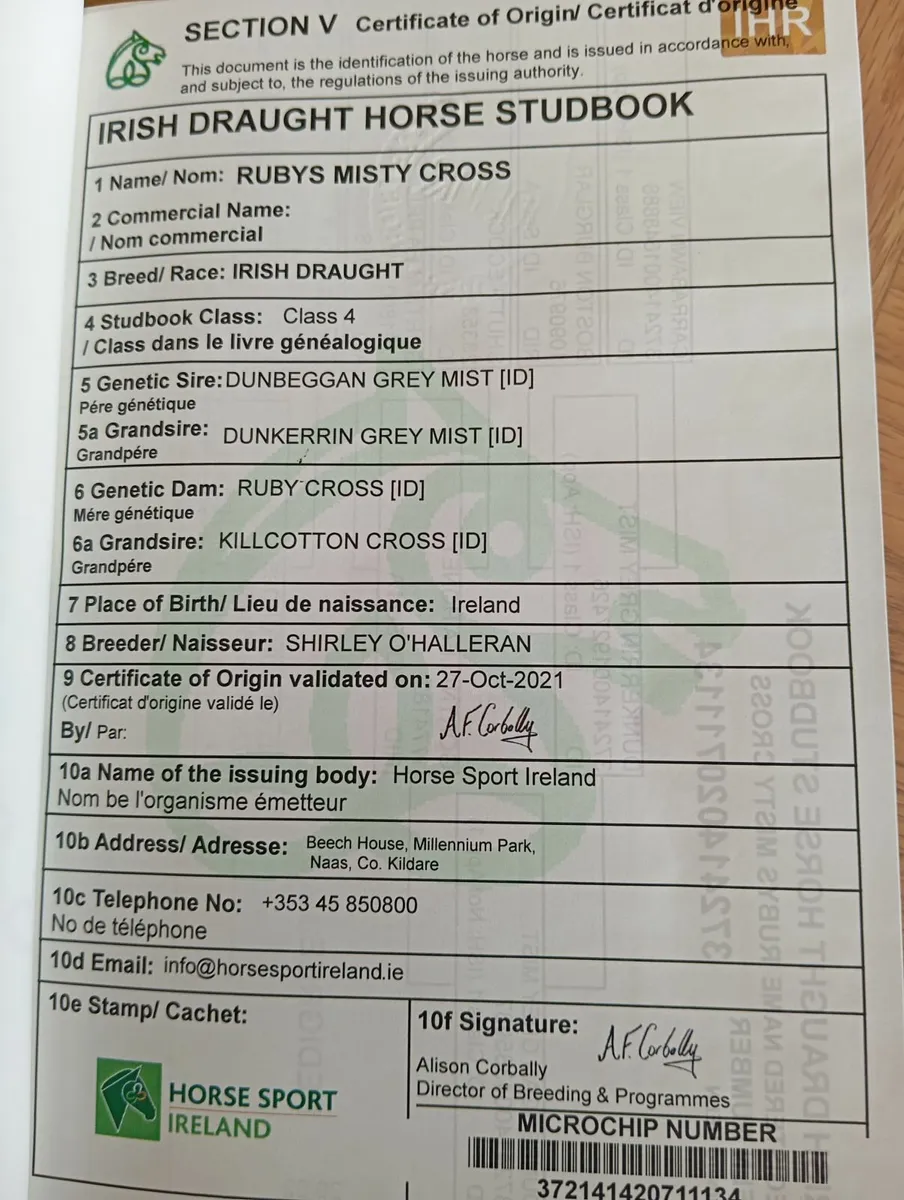 SECTION V Certificate of Origin/ Certificat d'origine
IHR
This document is the identification of the horse and is issued in accordance with,
and subject to, the regulations of the issuing authority.
IRISH DRAUGHT HORSE STUDBOOK
1 Name/ Nom: RUBYS MISTY CROSS
2 Commercial Name:
/ Nom commercial
3 Breed/ Race: IRISH DRAUGHT
4 Studbook Class: Class 4
/ Class dans le livre généalogique
5 Genetic Sire: DUNBEGGAN GREY MIST [ID]
Pére génétique
5a Grandsire: DUNKERRIN GREY MIST [ID]
Grandpére
6 Genetic Dam: RUBY CROSS [ID]
Mére génétique
6a Grandsire: KILLCOTTON CROSS [ID]
Grandpére
7 Place of Birth/ Lieu de naissance: Ireland
8 Breeder/ Naisseur: SHIRLEY O'HALLERAN
9 Certificate of Origin validated on: 27-Oct-2021
(Certificat d'origine validé le)
By/ Par: A.F. Corbally
10a Name of the issuing body: Horse Sport Ireland
Nom be l'organisme émetteur
10b Address/ Adresse: Beech House, Millennium Park,
Naas, Co. Kildare
10c Telephone No: +353 45 850800
No de téléphone
10d Email: info@horsesportireland.ie
10e Stamp/ Cachet:
HORSE SPORT
IRELAND
10f Signature: A.F. Corbally
Alison Corbally
Director of Breeding & Programmes
MICROCHIP NUMBER
372141420711134